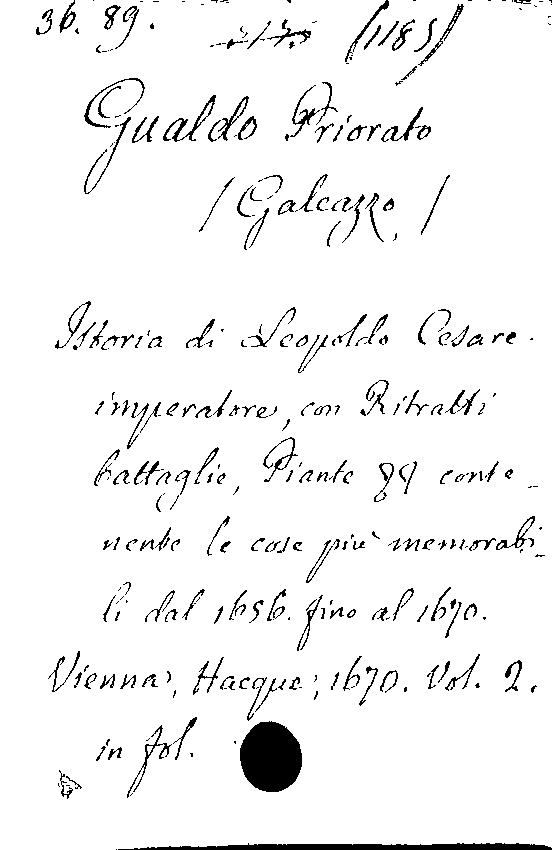 36. 89. (1185)
Gualdo Priorato
/ Galeazzo, /
Istoria di Leopoldo Cesare
imperatore, con Ritratti
battaglie, Piante conte_
nente le cose più memorabi_
li dal 1656. fino al 1670.
Vienna, Hacque, 1670. Vol. 2.
in fol.